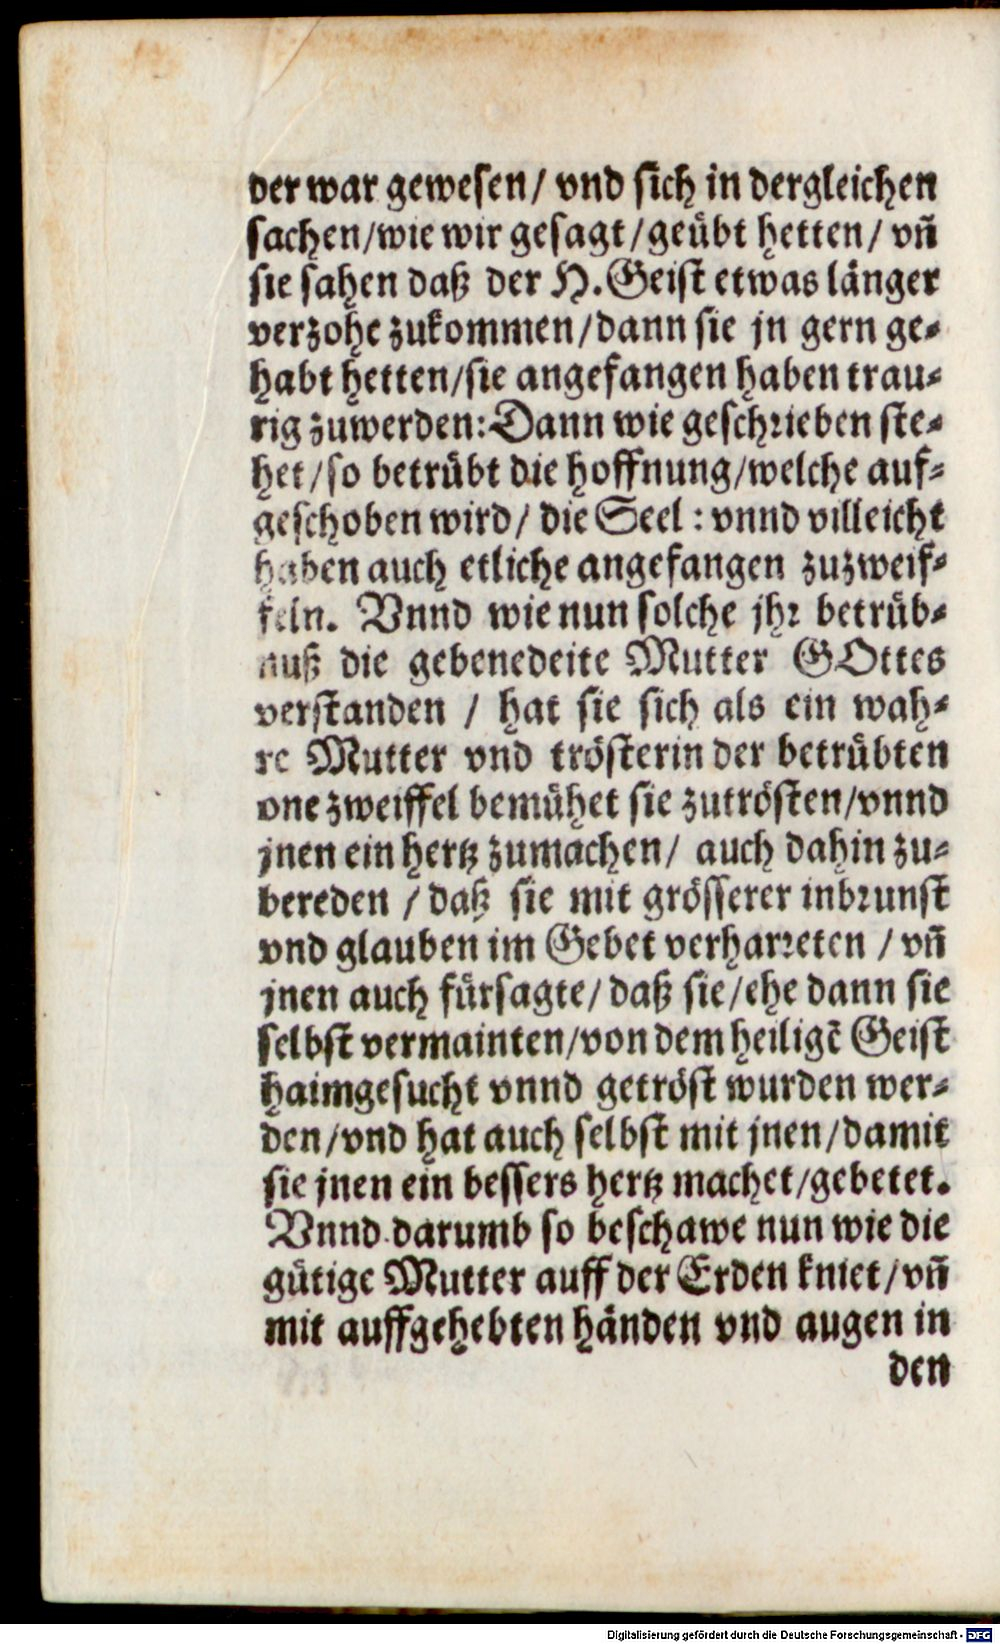 der war gewesen / vnd sich in dergleichen
sachen/wie wir gesagt/geübt hetten/ vñ
sie sahen daß der H. Geist etwas länger
verzohe zukommen/dann sie jn gern ge⸗
habt hetten/sie angefangen haben trau⸗
rig zuwerden: Dann wie geschrieben ste⸗
het/so betrübt die hoffnung/welche auf⸗
geschoben wird/ die Seel : vnnd villeicht
haben auch etliche angefangen zuzweif⸗
feln. Vnnd wie nun solche jhr betrüb⸗
nuß die gebenedeite Mutter GOttes
verstanden / hat sie sich als ein wah⸗
re Mutter vnd trösterin der betrübten
one zweiffel bemühet sie zutrösten/vnnd
jnen ein hertz zumachen/ auch dahin zu⸗
bereden / daß sie mit grösserer inbrunst
vnd glauben im Gebet verharreten / vñ
jnen auch fürsagte/daß sie/ehe dann sie
selbst vermainten/von dem heiligẽ Geist
haimgesucht vnnd getröst wurden wer⸗
den/vnd hat auch selbst mit jnen/damit
sie jnen ein bessers hertz machet/gebetet.
Vnnd darumb so beschawe nun wie die
gütige Mutter auff der Erden kniet/vñ
mit auffgehebten händen vnd augen in
den
Digitalisierung gefördert durch die Deutsche Forschungsgemeinschaft - DFG